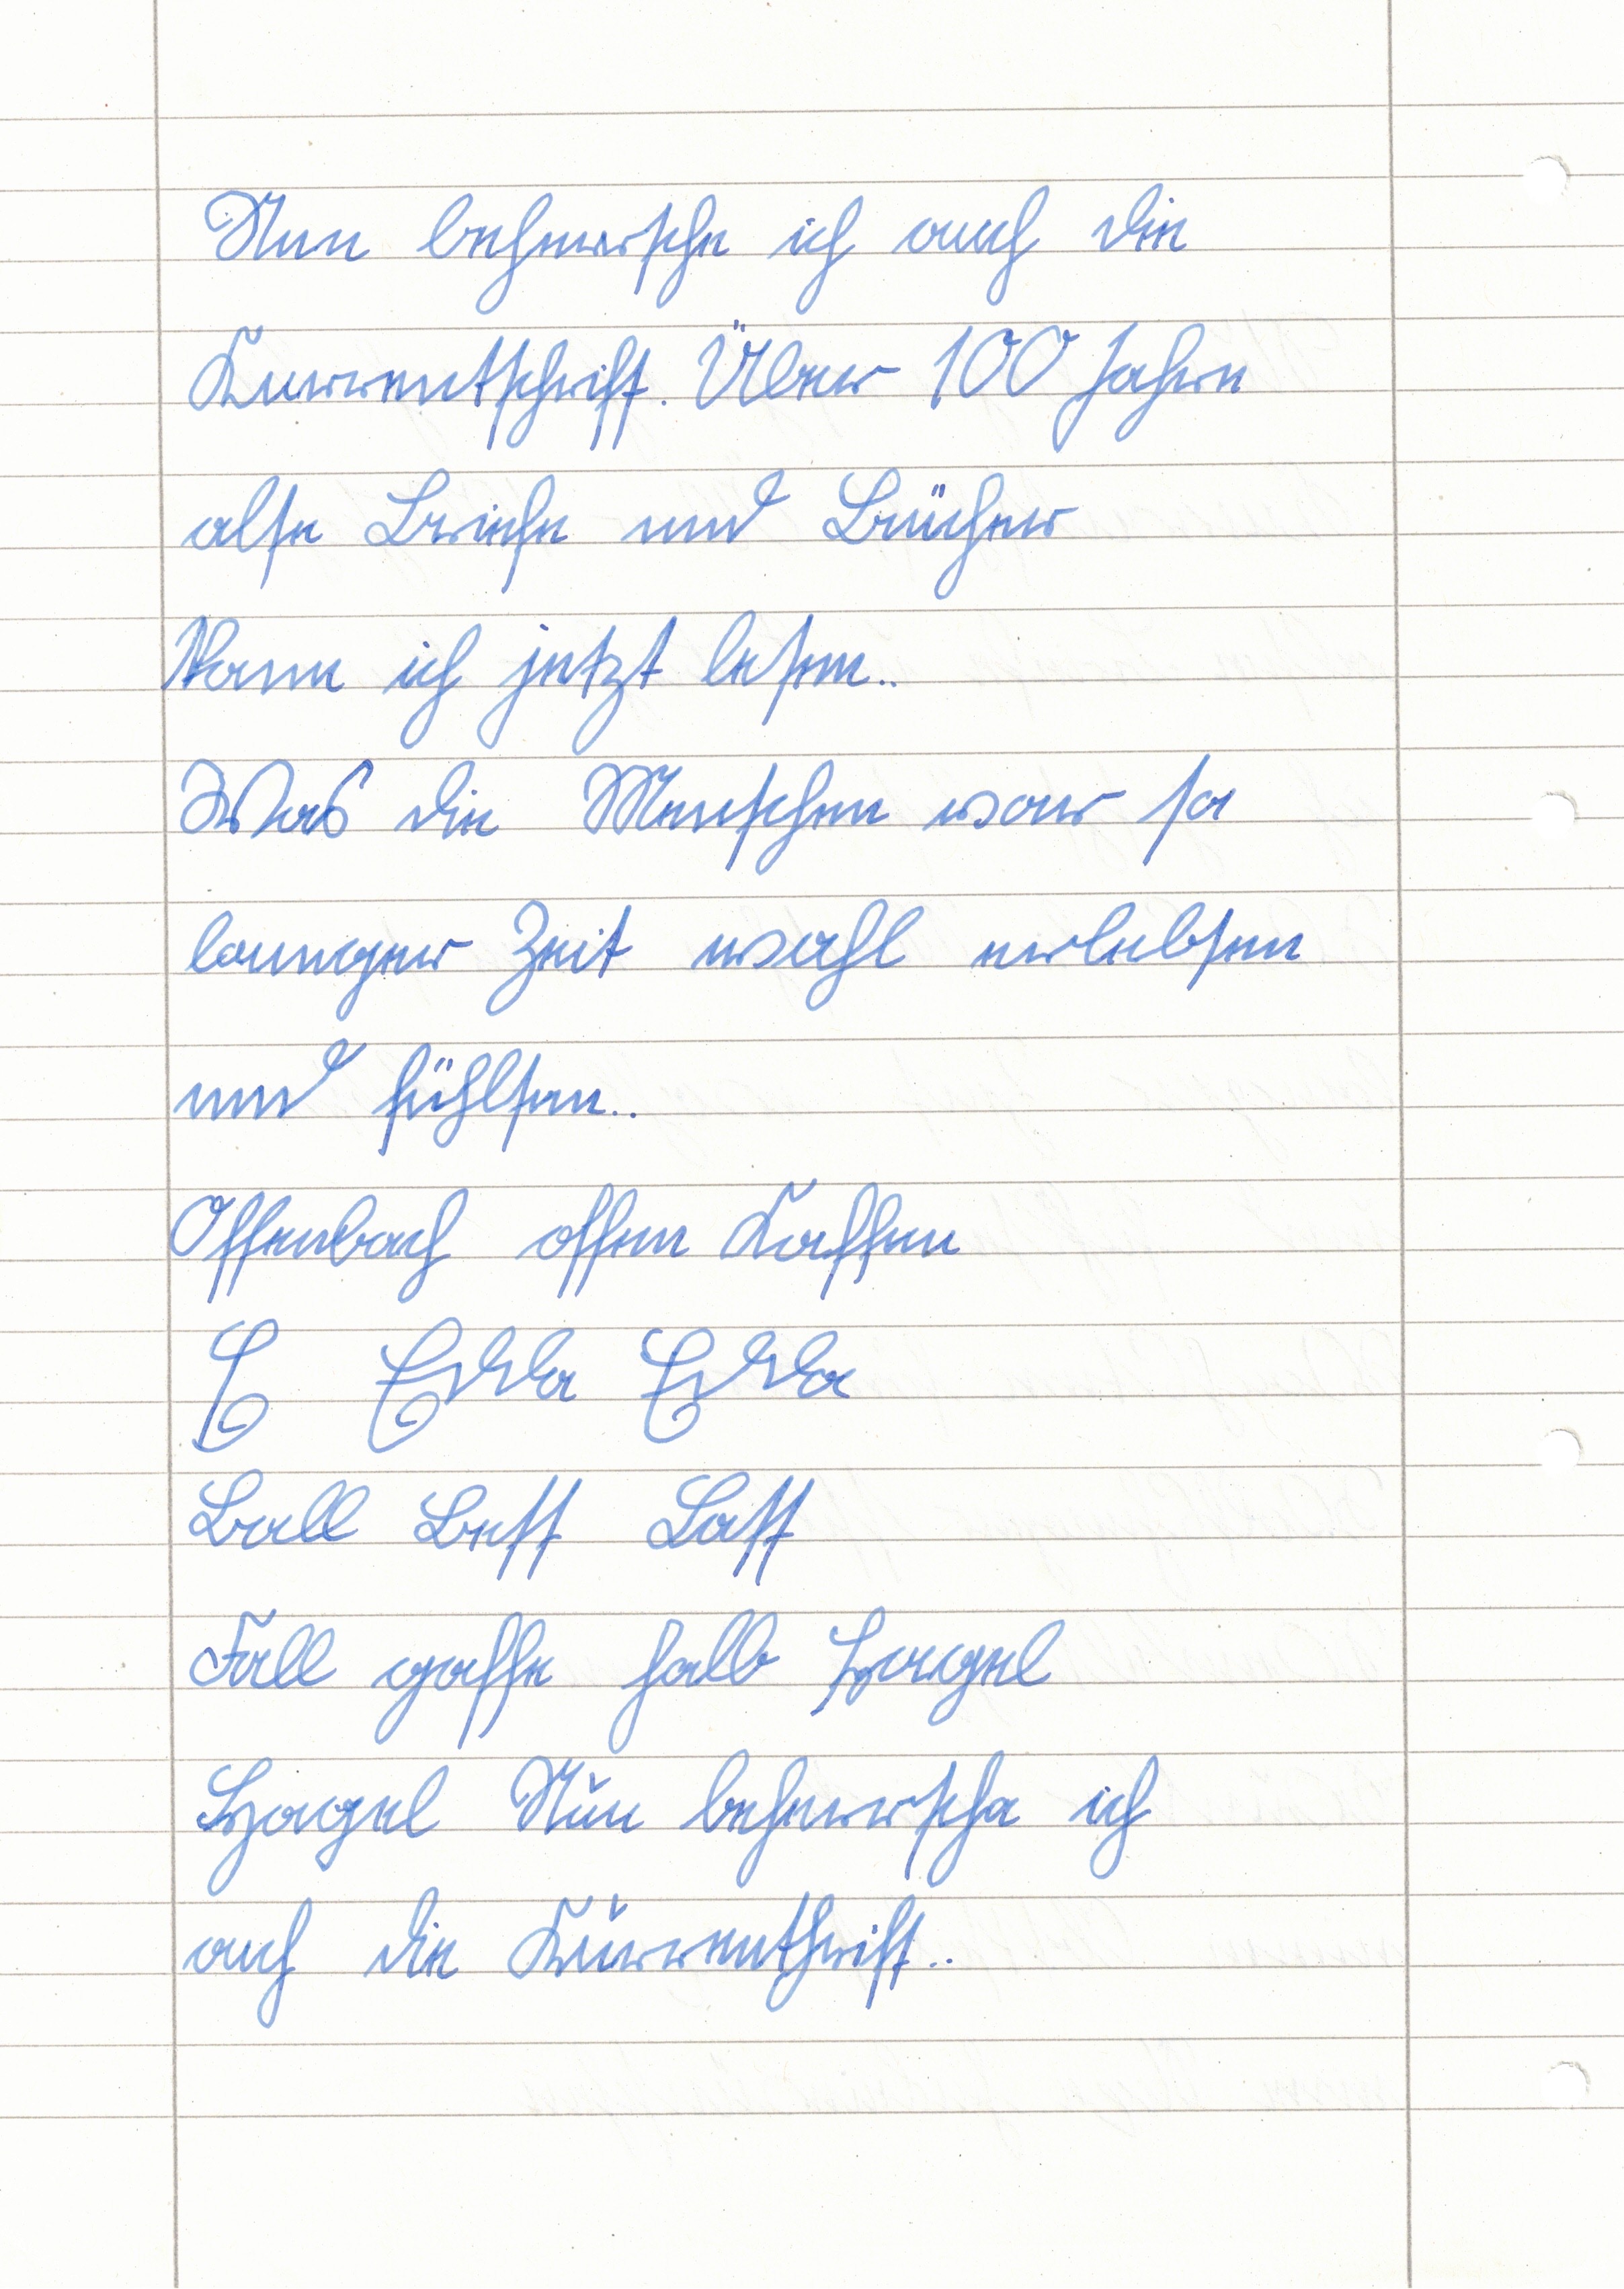 Nun beherrsche ich auch die
Kurrentschrift. Über 100 Jahre
alte Briefe und Bücher
kann ich jetzt lesen..
Was die Menschen vor so
langer Zeit wohl erlebten
und fühlten..
Offenbach offen Kaffee
E Edda Edda
Ball Bett Satt
Fall gaffe halb Hagel
Hagel Nun beherrsche ich
auch die Kurrentschrift..